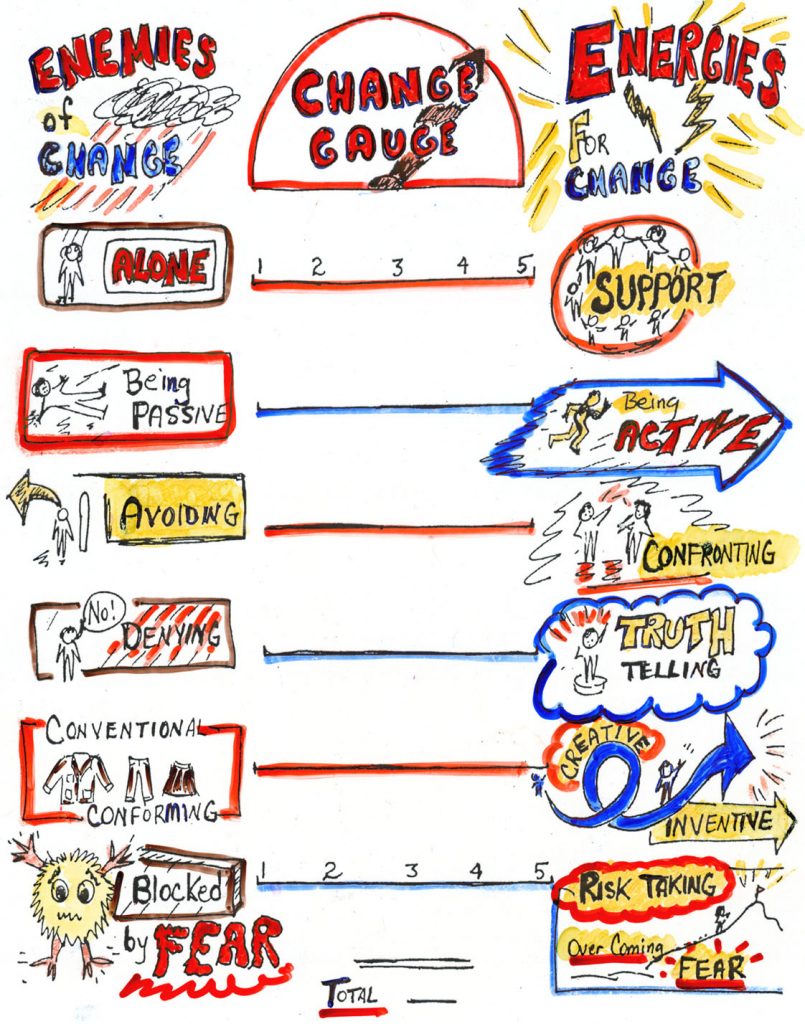 ENEMIES
of
CHANGE
CHANGE
GAUGE
ENERGIES
FOR
CHANGE
ALONE
1 2 3 4 5
SUPPORT
Being
PASSIVE
Being
ACTIVE
AVOIDING
CONFRONTING
No!
DENYING
TRUTH
TELLING
CONVENTIONAL
CONFORMING
CREATIVE
INVENTIVE
Blocked
by FEAR
1 2 3 4 5
RISK TAKING
Over Coming
FEAR
TOTAL